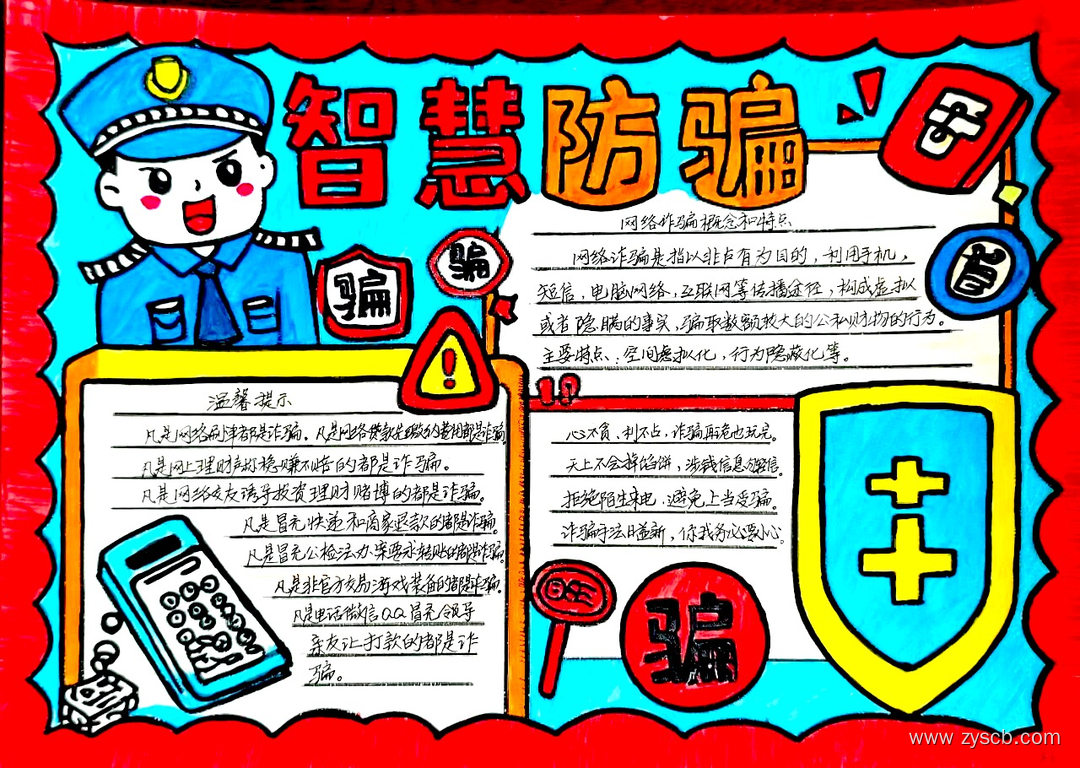 智慧防骗
骗
骗
网络诈骗概念和特点
网络诈骗是指以非占有为目的，利用手机，
短信，电脑网络，互联网等传播途径，构成虚拟
或者隐瞒的事实，骗取数额较大的公私财物的行为。
主要特点：空间虚拟化，行为隐蔽化等。
温馨提示
凡是网络刷单都是诈骗。凡是网络贷款先缴的费用都是诈骗
凡是网上理财声称稳赚不赔的都是诈骗。
凡是网络交友诱导投资理财赌博的都是诈骗。
凡是冒充快递和商家退款的都是诈骗
凡是冒充公检法办案要求转账的都是诈骗
凡是非官方交易游戏装备的都是诈骗。
凡是电话微信QQ冒充领导
亲友让打款的都是诈
骗。
心不贪，利不占，诈骗再诡也玩完。
天上不会掉馅饼，涉钱信息勿轻信。
拒绝陌生来电，避免上当受骗。
诈骗手法日益新，你我务必要小心。
骗
www.zyscb.com